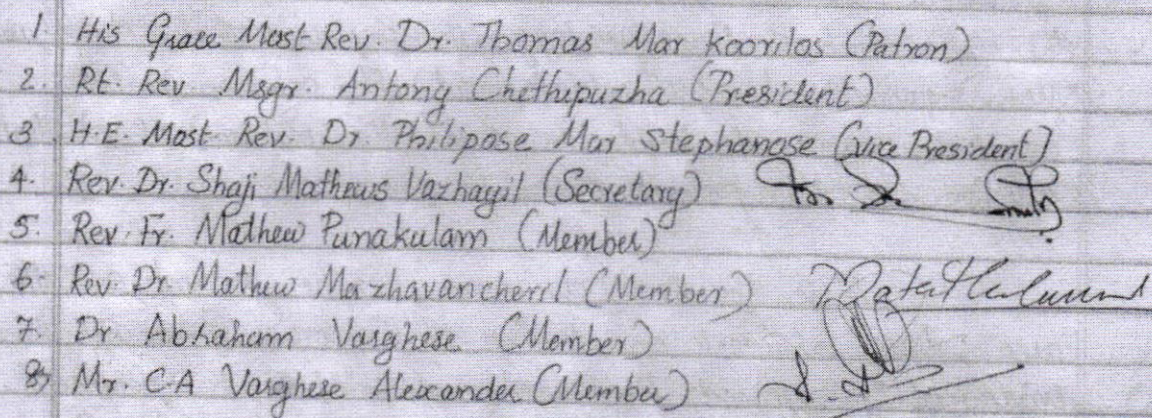 1. His Grace Most Rev. Dr. Thomas Mar Koorilos (Patron)
2. Rt. Rev Msgr. Antony Chethipuzha (President)
3 H.E. Most Rev. Dr Philipose Mar Stephanose (Vice President)
4. Rev. Dr. Shaji Mathews Vazhayil (Secretary)
5. Rev. Fr. Mathew Punakulam (Member)
6. Rev. Dr. Mathew Mazhavancheril (Member)
7. Dr Abraham Varghese (Member)
8) Mr. C.A Varghese Alexander (Member)